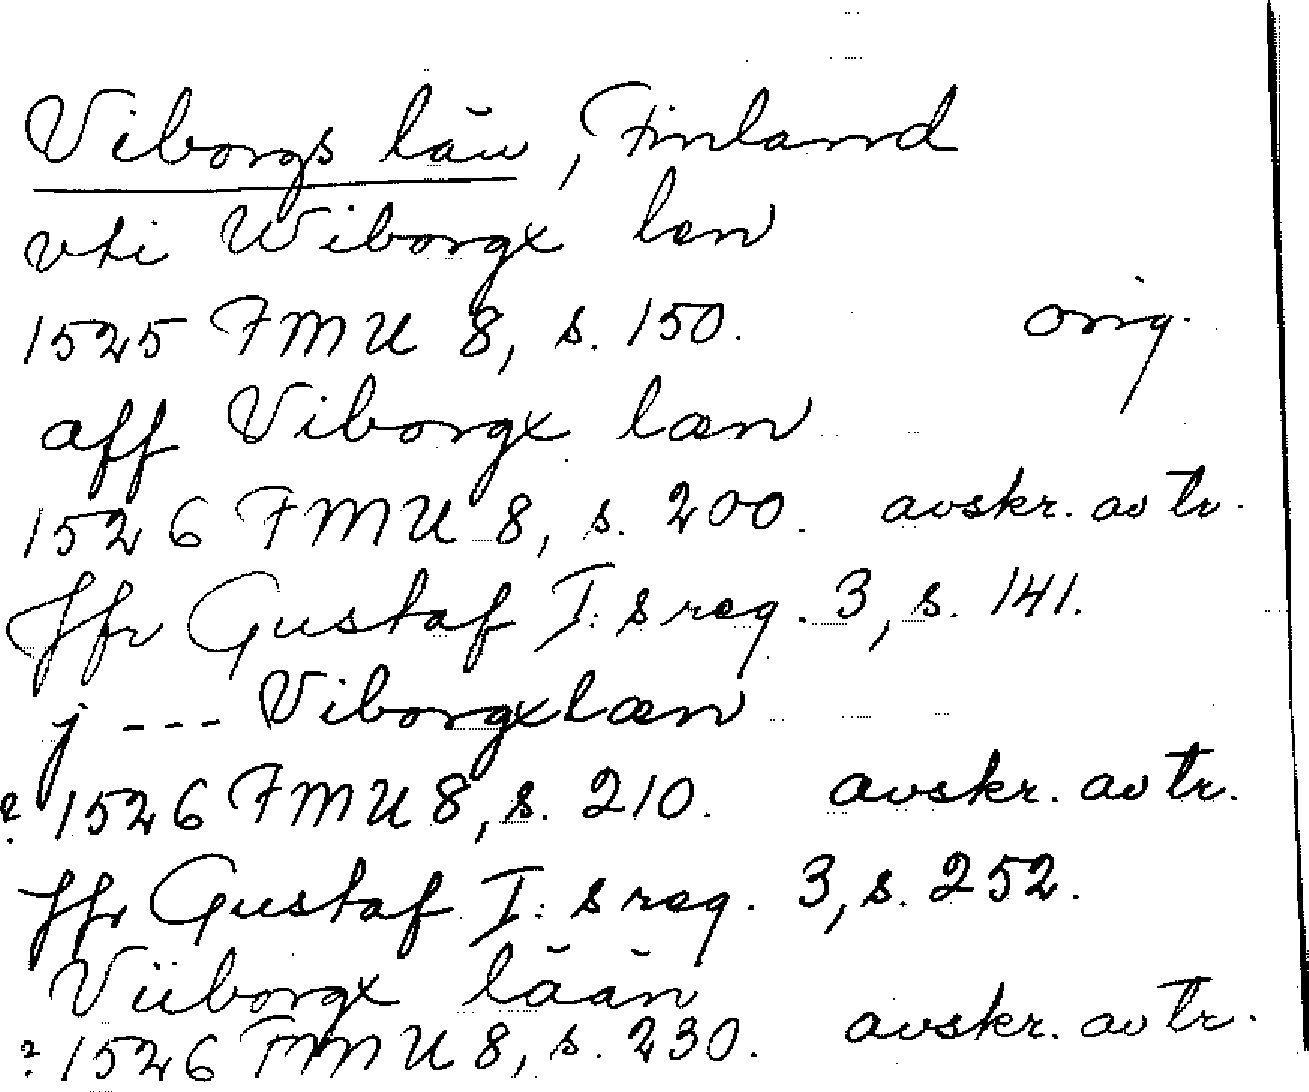 Viborgs län, Finland
vti Wiborgx len
1525 FMU 8, s. 150. orig.
aff Viborgx læn
1526 FMU 8, s. 200. avskr. av tr.
Jfr Gustaf I:s reg. 3, s. 141.
j --- Viborgxlæn
? 1526 FMU 8, s. 210. avskr. av tr.
Jfr Gustaf I:s reg. 3, s. 252.
Viiborgx lään
? 1526 FMU 8, s. 230. avskr. av tr.